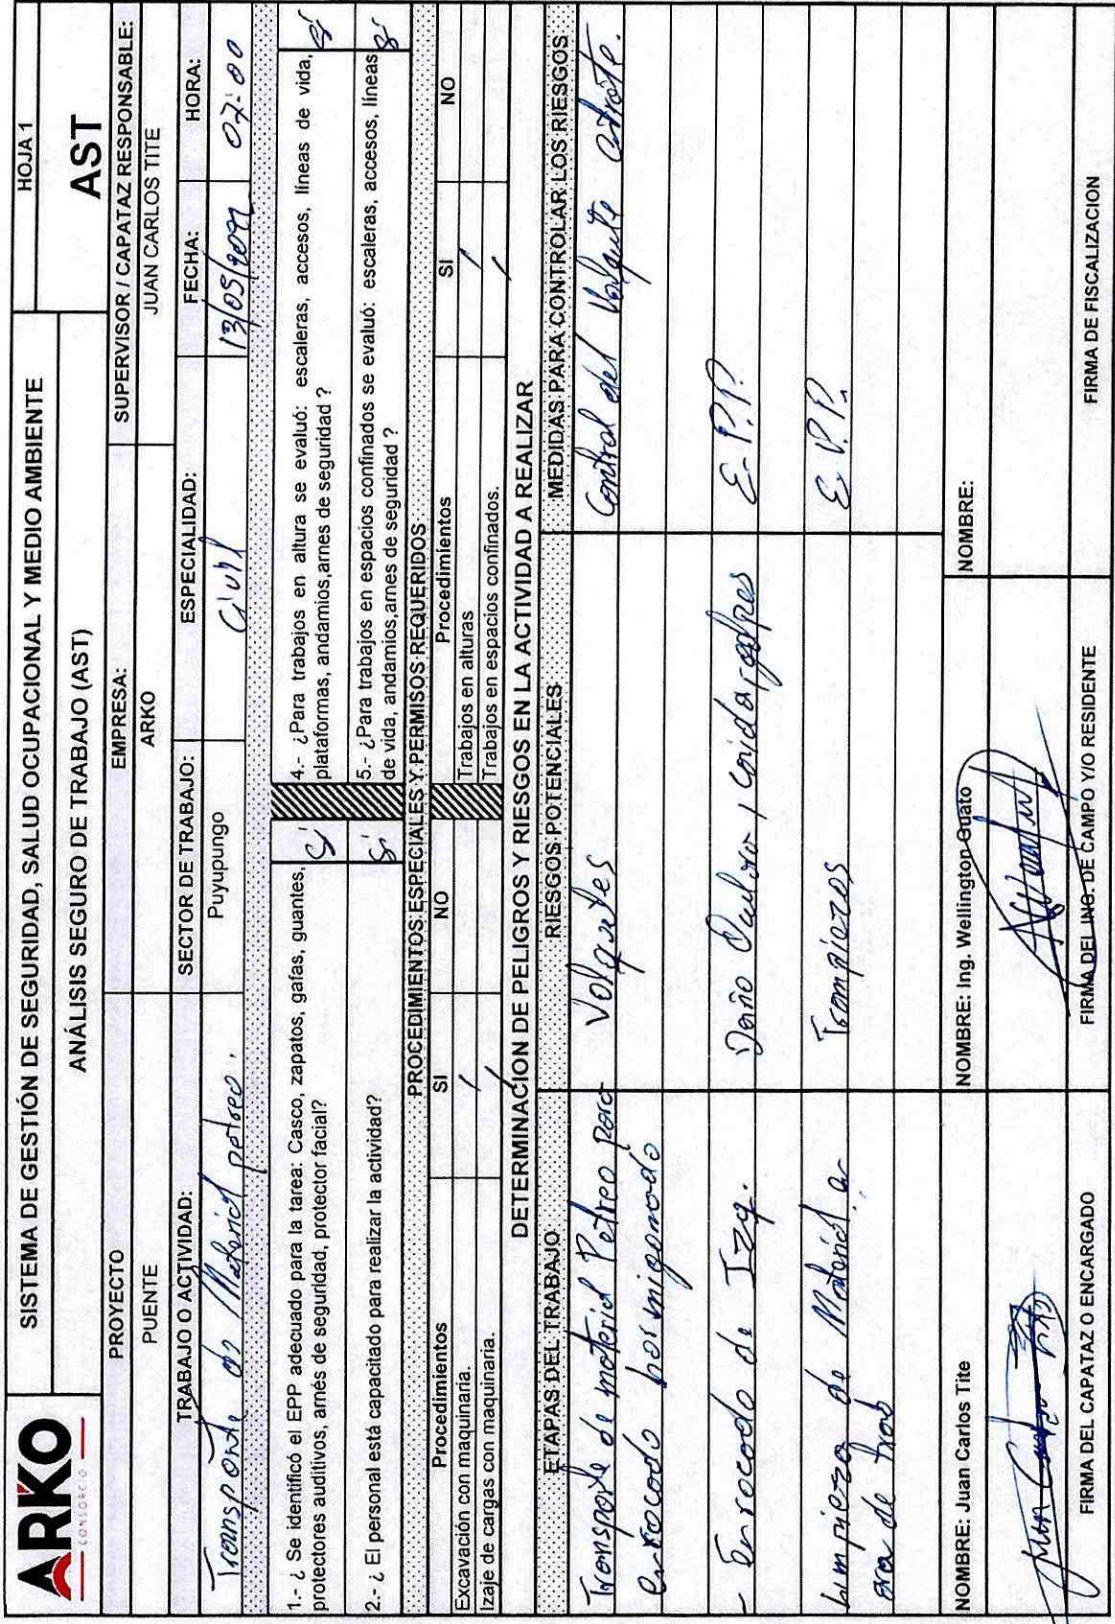 ARKO
CONSORCIO
SISTEMA DE GESTIÓN DE SEGURIDAD, SALUD OCUPACIONAL Y MEDIO AMBIENTE
HOJA 1
ANÁLISIS SEGURO DE TRABAJO (AST)
AST
PROYECTO
EMPRESA:
SUPERVISOR / CAPATAZ RESPONSABLE:
PUENTE
ARKO
JUAN CARLOS TITE
TRABAJO O ACTIVIDAD:
SECTOR DE TRABAJO:
ESPECIALIDAD:
FECHA:
HORA:
Transporte de Material petreo.
Puyupungo
Civil
13/05/2022
07:00
1.- ¿ Se identificó el EPP adecuado para la tarea: Casco, zapatos, gafas, guantes,
protectores auditivos, arnés de seguridad, protector facial?
Sí
4.- ¿Para trabajos en altura se evaluó: escaleras, accesos, líneas de vida,
plataformas, andamios,arnes de seguridad ?
Sí
2.- ¿ El personal está capacitado para realizar la actividad?
Sí
5.- ¿Para trabajos en espacios confinados se evaluó: escaleras, accesos, líneas
de vida, andamios,arnes de seguridad ?
Sí
PROCEDIMIENTOS ESPECIALES Y PERMISOS REQUERIDOS
Procedimientos
SI
NO
Procedimientos
SI
NO
Excavación con maquinaria.
/
Trabajos en alturas
/
Izaje de cargas con maquinaria.
/
Trabajos en espacios confinados.
/
DETERMINACION DE PELIGROS Y RIESGOS EN LA ACTIVIDAD A REALIZAR
ETAPAS DEL TRABAJO
RIESGOS POTENCIALES
MEDIDAS PARA CONTROLAR LOS RIESGOS
Transporte de material Petreo para
Volquetes
Control del Volquete
enrocado hormigonado
- Enrocado de Izq.
Daño caida, golpes
E.P.P.
Limpieza de Material a
Tropiezos
E.P.P.
area de trab
NOMBRE: Juan Carlos Tite
NOMBRE: Ing. Wellington Guato
NOMBRE:
FIRMA DEL CAPATAZ O ENCARGADO
FIRMA DEL ING. DE CAMPO Y/O RESIDENTE
FIRMA DE FISCALIZACION